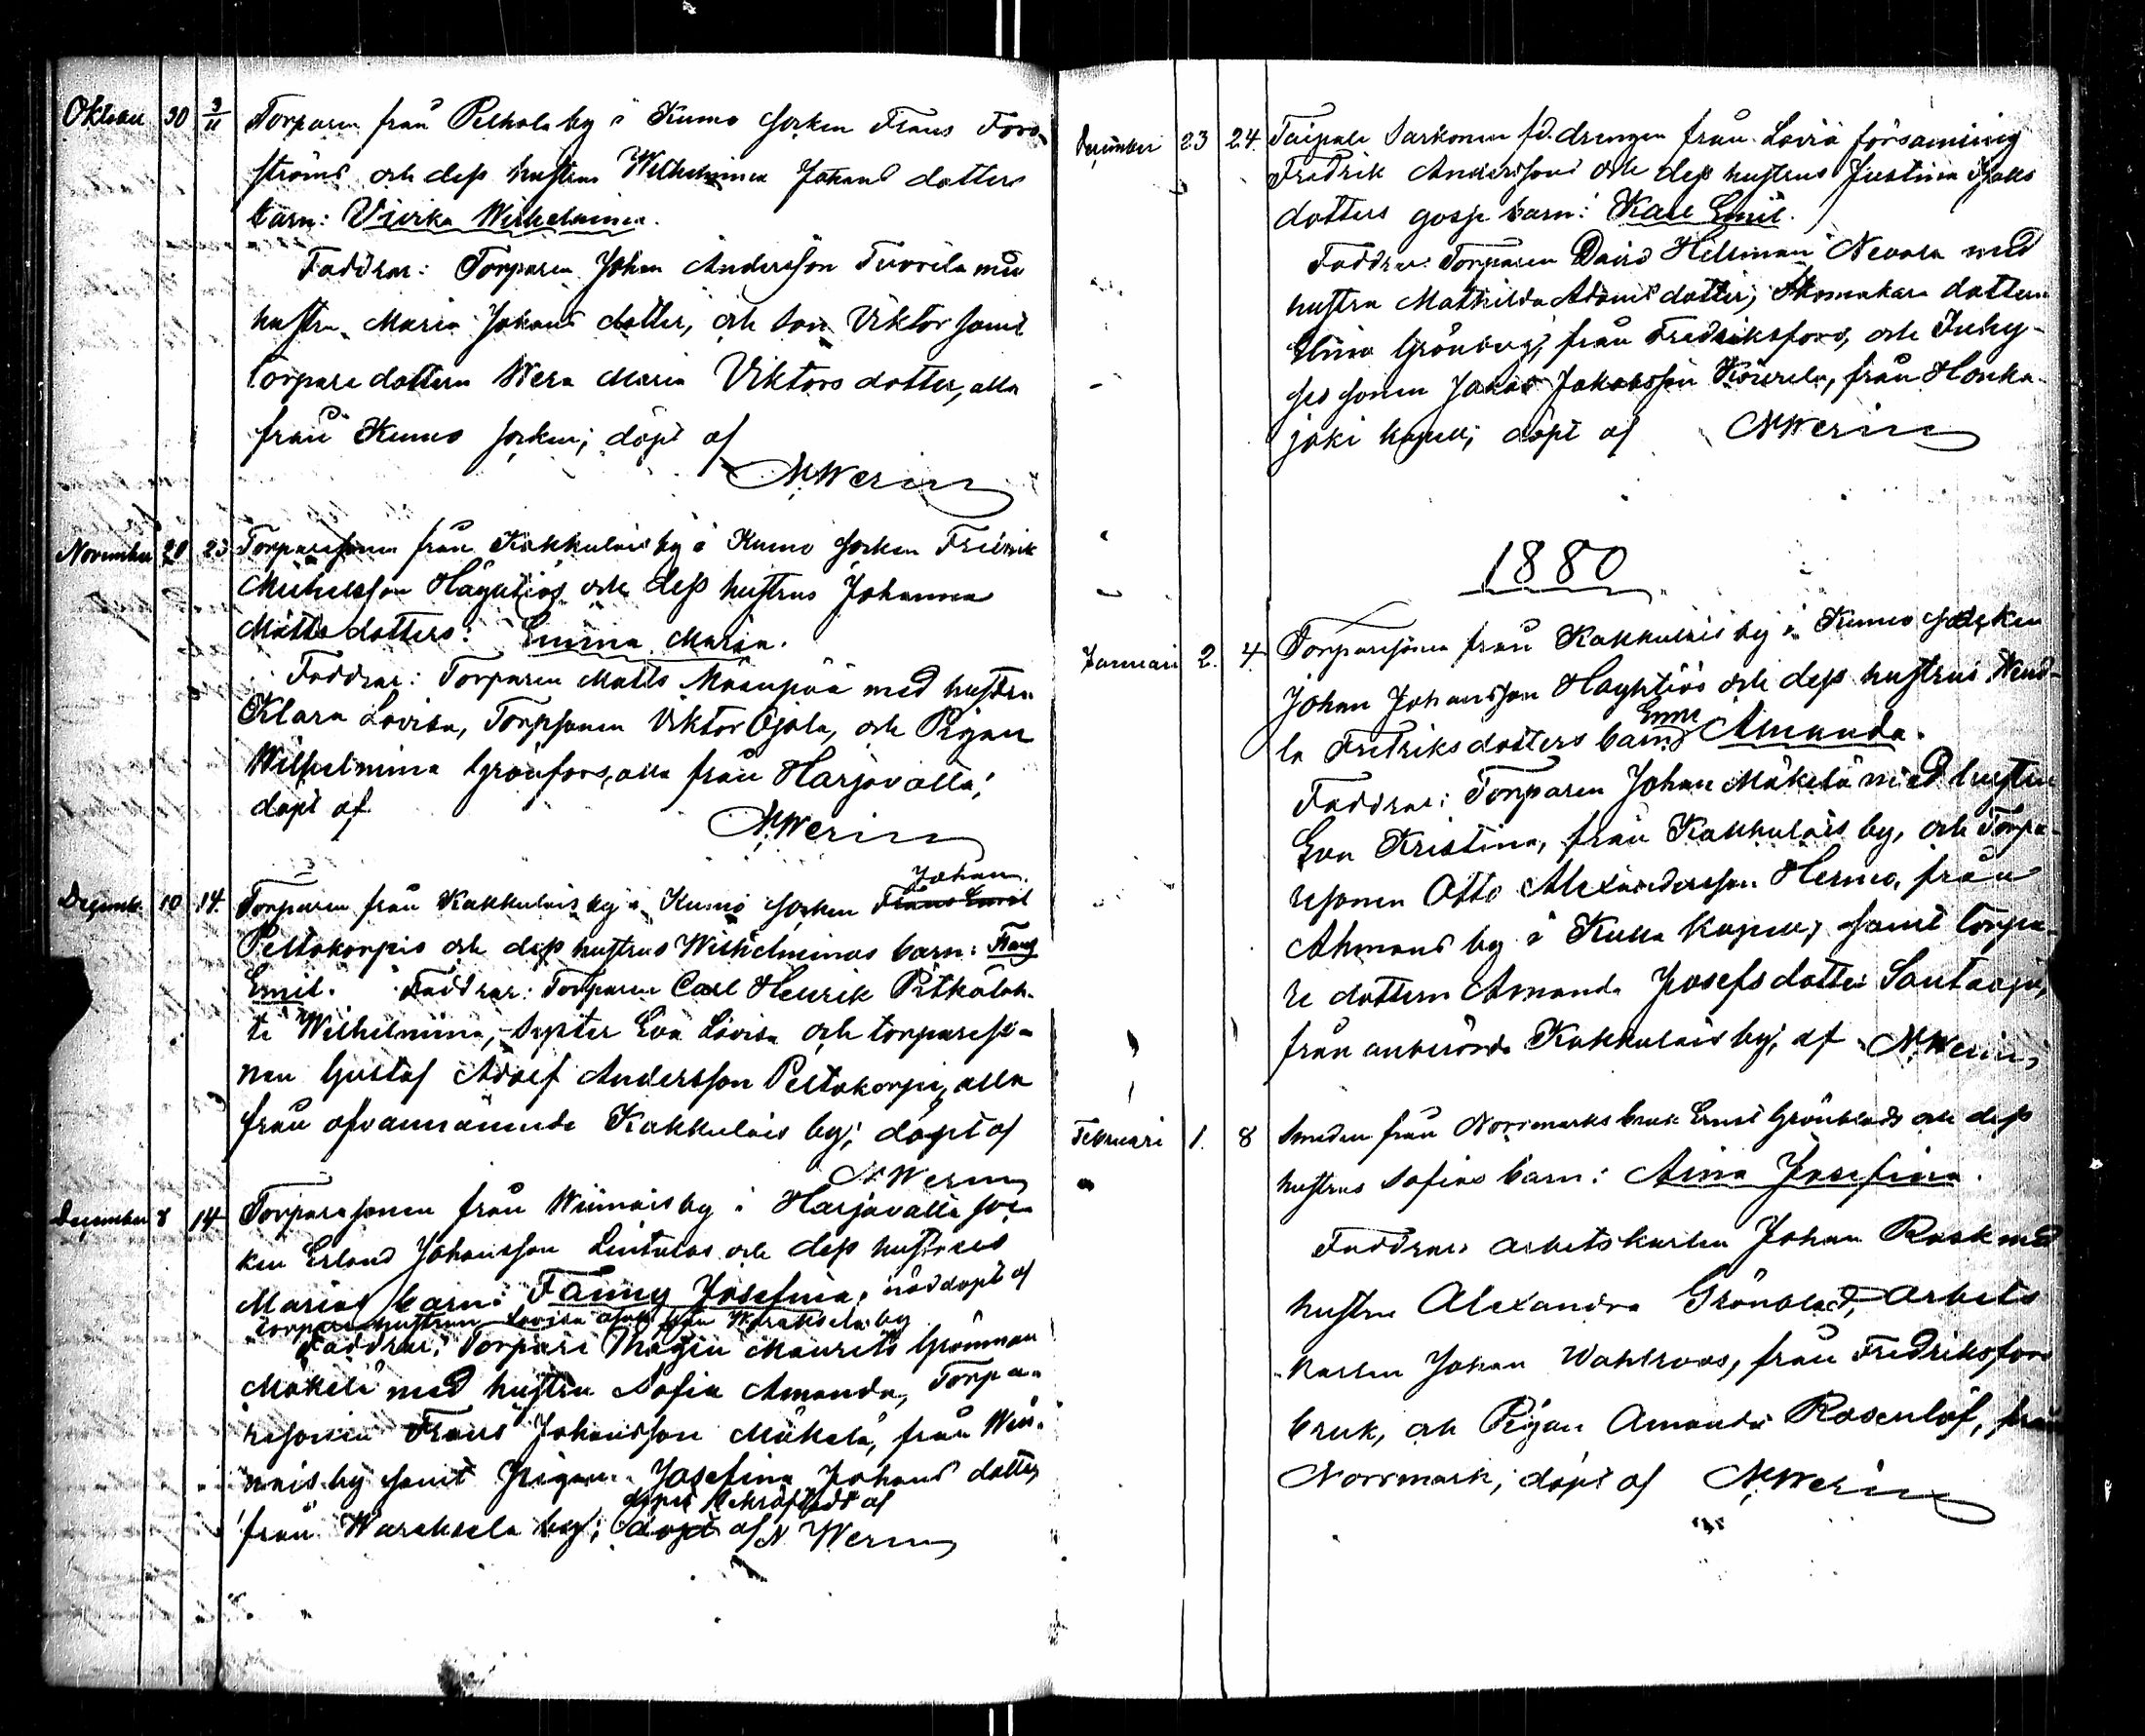 Oktober 30 3/11 Torparen från Pelhola by i Kumo socken Frans Fors-
ströms och dess hustrus Wilhelmina Johans dotters
barn: Viivika Wilhelmina.
Faddrar: Torparen Johan Andersson Tuorila med
hustru Maria Johans dotter, och son Viktor samt
torpare dottern Wera Maria Viktors dotter, alla
från Kumo socken; döpt af
N Werin
November 20 23 Torparesonen från Kakkulais by i Kumo socken Fredrik
Michelsson Häyhtiös och dess hustrus Johanna
Matts dotters: Emma Maria.
Faddrar: Torparen Matts Mäenpää med hustru
Klara Lovisa, Torpsonen Viktor Ojala, och Pigan
Wilhelmina Grönfors, alla från Harjavalla;
döpt af
N Werin
Johan
Decemb. 10 14. Torparen från Kakkulais by i Kumo socken Frans Emil
Peltokorpis och dess hustrus Wilhelminas barn: Frans
Emil. Faddrar: Torparen Carl Henrik Pitkälah-
ti Wilhelmina, syster Eva Lovisa och torpareso-
nen Gustaf Adolf Andersson Peltokorpi, alla
från ofvannämnde Kakkulais by; döpt af
N Werin
December 8 14 Torparesonen från Wiinnais by i Harjavalla soc-
ken Erland Johansson Lintulas och dess hustrus
Marias barn: Fanny Josefina, nöddöpt af
torpare hustrun Lovisa från Wareksela by
Faddrar: Torpare Mågen Maurits Grönman
Mäkelä med hustru Sofia Amanda, Torpa-
resonen Frans Johansson Mäkelä, från Wiin-
nais by samt Pigan Josefina Johans dotter
dopet bekräftadt af
från Wareksela by; döpt af N Werin
December 23 24. Taipale Sarkonen fd. drengen från Lavia församling
Fredrik Anderssons och dess hustrus Justina Isaks
dotters gosse barn: Karl Emil.
Faddrar: Torparen David Hellman Nevala med
hustru Mathilda Adams dotter; Skomakare dottern
Elina Grönberg, från Fredriksfors, och Inhy-
ses sonen Jakob Jakobsson Kivirela, från Honka-
joki kapell; döpt af N Werin
1880
Januari 2. 4 Torparesonen från Kakkulais by i Kumo socken
Johan Johansson Häyhtiös och dess hustrus Wend-
Emma
la Fredriks dotters barn: Amanda.
Faddrar: Torparen Johan Mäkelä med hustru
Eva Kristina, från Kakkulais by, och Torpa-
resonen Otto Alexandersson Hermo, från
Ahmaus by i Kulla kapell, samt torpa-
re dottern Amanda Josefs dotter Santaoja,
från anberörde Kakkulais by; af N Werin
Februari 1. 8 Smeden från Norrmarks bruk Ernst Grönblads och dess
hustrus Sofias barn: Aina Josefina.
Faddrar: arbetskarlen Johan Rask med
hustru Alexandra Grönblad, arbets
karlen Johan Wahlroos, från Fredriksfors
bruk, och Pigan Amanda Rosenlöf, från
Norrmark; döpt af N Werin